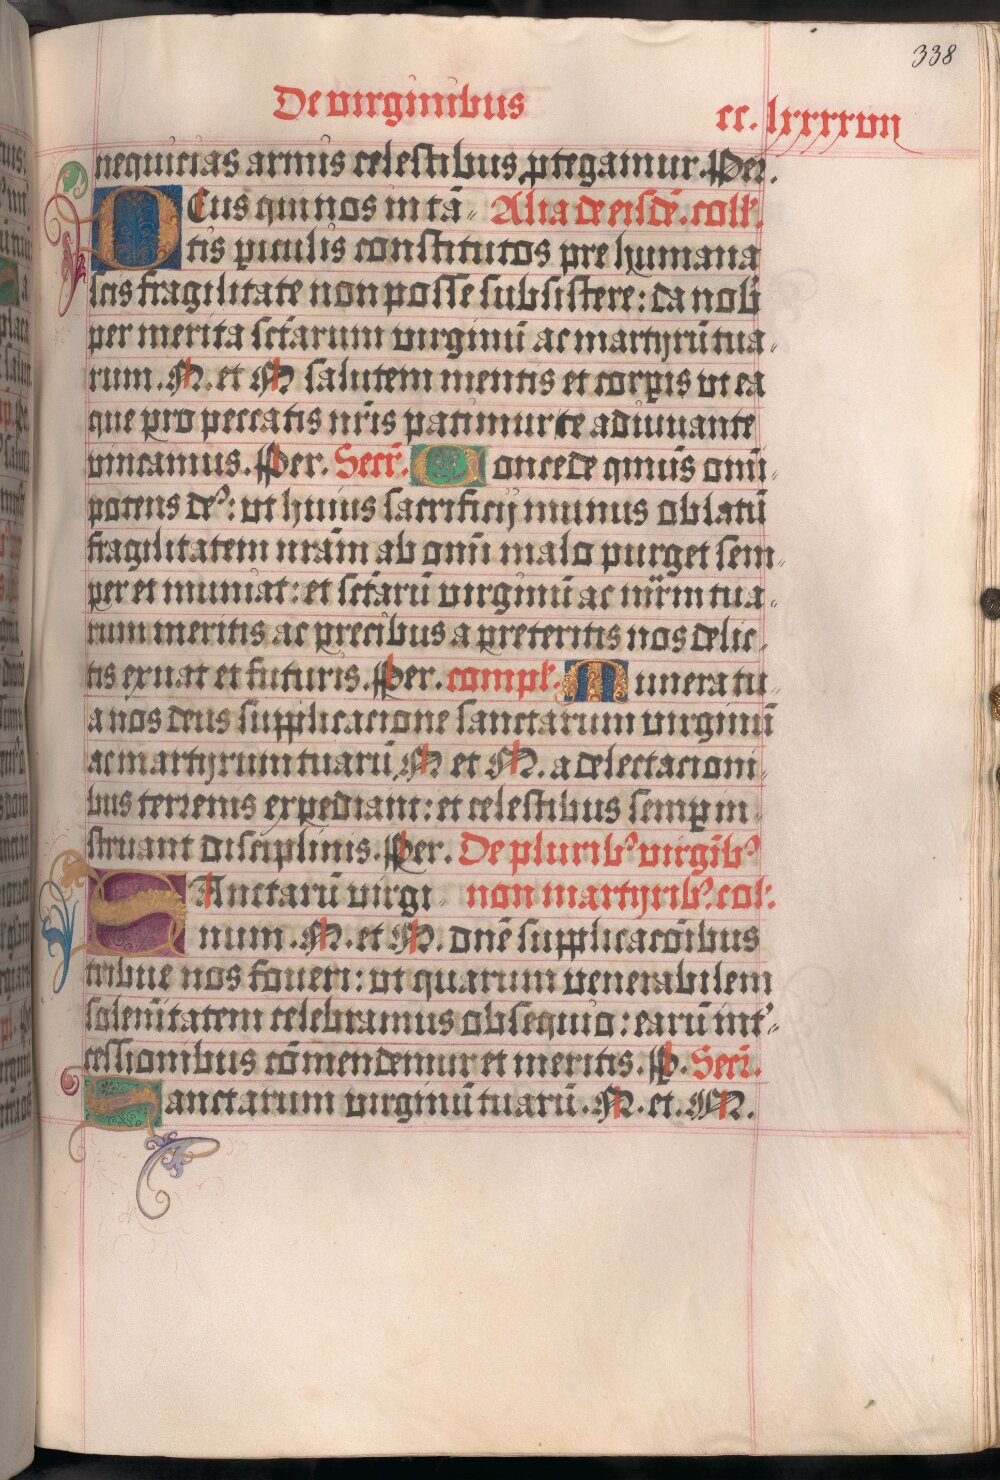 338
De virginibus
cc. lxxxxvii
nequicias armis celestibus ꝓtegamur. Per.
DEus qui nos in tā- Alia de eisdē. coll'.
tis piculis constitutos pre humana
scis fragilitate non posse subsistere: da nob̄
per merita sctārum virginū ac martyrū tua-
rum. N. et N salutem mentis et corꝑis vt ea
que pro peccatis nr̄is patimur te adiuuante
vincamus. Per. Secr̄. Concede q̄muis om̄i-
potens deꝰ: vt huius sacrificij munus oblatū
fragilitatem nrām ab om̄i malo purget sem-
per et muniat: et sctārū virginū ac mr̄m tua-
rum meritis ac precibus a preteritis nos delic-
tis exuat et futuris. Per. compl'. Munera tu-
a nos deus supplicacione sanctarum virginū
ac martyrum tuarū N et N. a delectacioni-
bus terrenis expediant: et celestibus semꝑ in-
struant disciplinis. Per. De pluribꝰ virgībꝰ
SAnctarū virgi- non martyribꝰ. col'.
num. N. et N. dnē supplicacōibus
tribue nos foueri: vt quarum venerabilem
solēnitatem celebramus obsequio: earū int'-
cessionibus cōmendemur et meritis. P. Secr̄.
Sanctarum virginū tuarū. N. et. N.